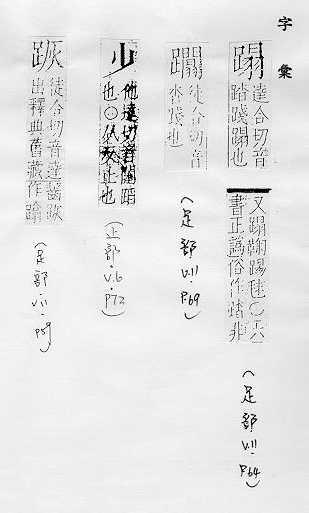 字彙
蹋
達合切音
踏踐蹋也
又蹋鞠踢毬〇六
書正譌俗作踏非
(足部 V.11 P.64)
徒合切音
沓踐也
(足部 V.11 P.69)
𣥂
他達切音闥蹈
也〇从反止也
(止部・V.6・P72)
徒合切音
出釋典舊藏作
(足部 V.11 P59)